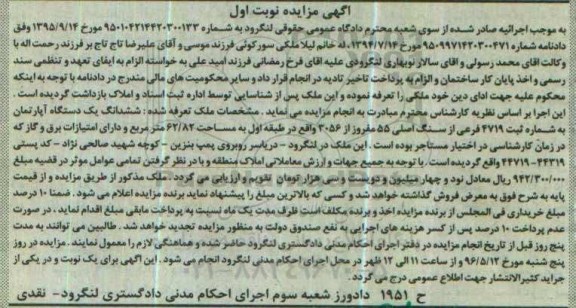 آگهی مزایده نوبت اول
به موجب اجرائیه صادر شده از سوی شعبه محترم دادگاه عمومی حقوقی لنگرود به شماره ۹۵۰۱۰۴۲۱۴۴۲۰۳۰۰۱۳۳ مورخ ۱۳۹۵/۹/۱۴ وفق
دادنامه شماره ۹۵۰۹۹۷۱۴۲۰۳۰۰۴۷۱ مورخ ۱۳۹۴/۷/۱۴ له خانم لیلا ملکی سورکوئی فرزند موسی و آقای علیرضا تاج تاج بر فرزند رحمت اله با
وکالت اقای محمد رسولی و اقای سالار نوبهاری لنگرودی علیه اقای فرخ رمضانی فرزند امید علی به خواسته الزام به ایفای تعهد و تنظیمی سند
رسمی و اخذ پایان کار ساختمان و الزام به پرداخت تاخیر تادیه در انجام قرار داد و سایر محکومیت های مالی مندرج در دادنامه با توجه به اینکه
محکوم علیه جهت ادای دین خود ملکی را تعرفه نموده و این ملک پس از شناسایی توسط اداره ثبت اسناد و املاک بازداشت گردیده است .
این اجرا بر اساس نظریه کارشناس محترم مبادرت به انجام مزایده می نماید . مشخصات ملک تعرفه شده : ششدانگ یک دستگاه آپارتمان
به شماره ثبت ۴۷۱۹ فرعی از سنگ اصلی ۵۵ مفروز از ۳۰۵۶ واقع در طبقه اول به مساحت ۶۲/۸۲ متر مربع و دارای امتیازات برق و گاز که
در زمان کارشناسی در اختیار مستاجر بوده است . این ملک در لنگرود - دریاسر روبروی پمپ بنزین - کوچه شهید صالحی نژاد - کد پستی
۴۴۳۱۹-۴۴۷۱۹ واقع گردیده است . با توجه به جمیع جهات و ارزش معاملاتی املاک منطقه و با در نظر گرفتن تمامی عوامل موثر در قضیه مبلغ
۹۴۲/۳۰۰/۰۰۰ ریال معادل نود و چهار میلیون و دویست و سی هزار تومان تقویم و ارزیابی می گردد . ملک مذکور از طریق مزایده و از قیمت
پایه به شرح فوق به معرض فروش گذاشته خواهد شد و کسی که بالاترین مبلغ را پیشنهاد نماید برنده مزایده اعلام می شود . ضمنا ۱۰ درصد
مبلغ خریداری فی المجلس از برنده مزایده اخذ و برنده مکلف است ظرف مدت یک ماه نسبت به پرداخت مابقی مبلغ اقدام نماید . در صورت
عدم پرداخت ۱۰ درصد پس از کسر هزینه های اجرایی به نفع صندوق دولت به منظور مزایده تجدید خواهد شد . طالبین می توانند به مدت
پنج روز قبل از تاریخ انجام مزایده در دفتر اجرای احکام مدنی دادگستری لنگرود حاضر شده و هماهنگی لازم را معمول نمایند . مزایده در روز
پنج شنبه مورخ ۹۶/۵/۱۲ و از ساعت ۱۱ الی ۱۲ ظهر در محل اجرای احکام مدنی لنگرود انجام می شود . این آگهی برای یک نوبت و در یکی از
جراید کثیرالانتشار جهت اطلاع عمومی درج می گردد .
ح ۱۹۵۱ دادورز شعبه سوم اجرای احکام مدنی دادگستری لنگرود- نقدی